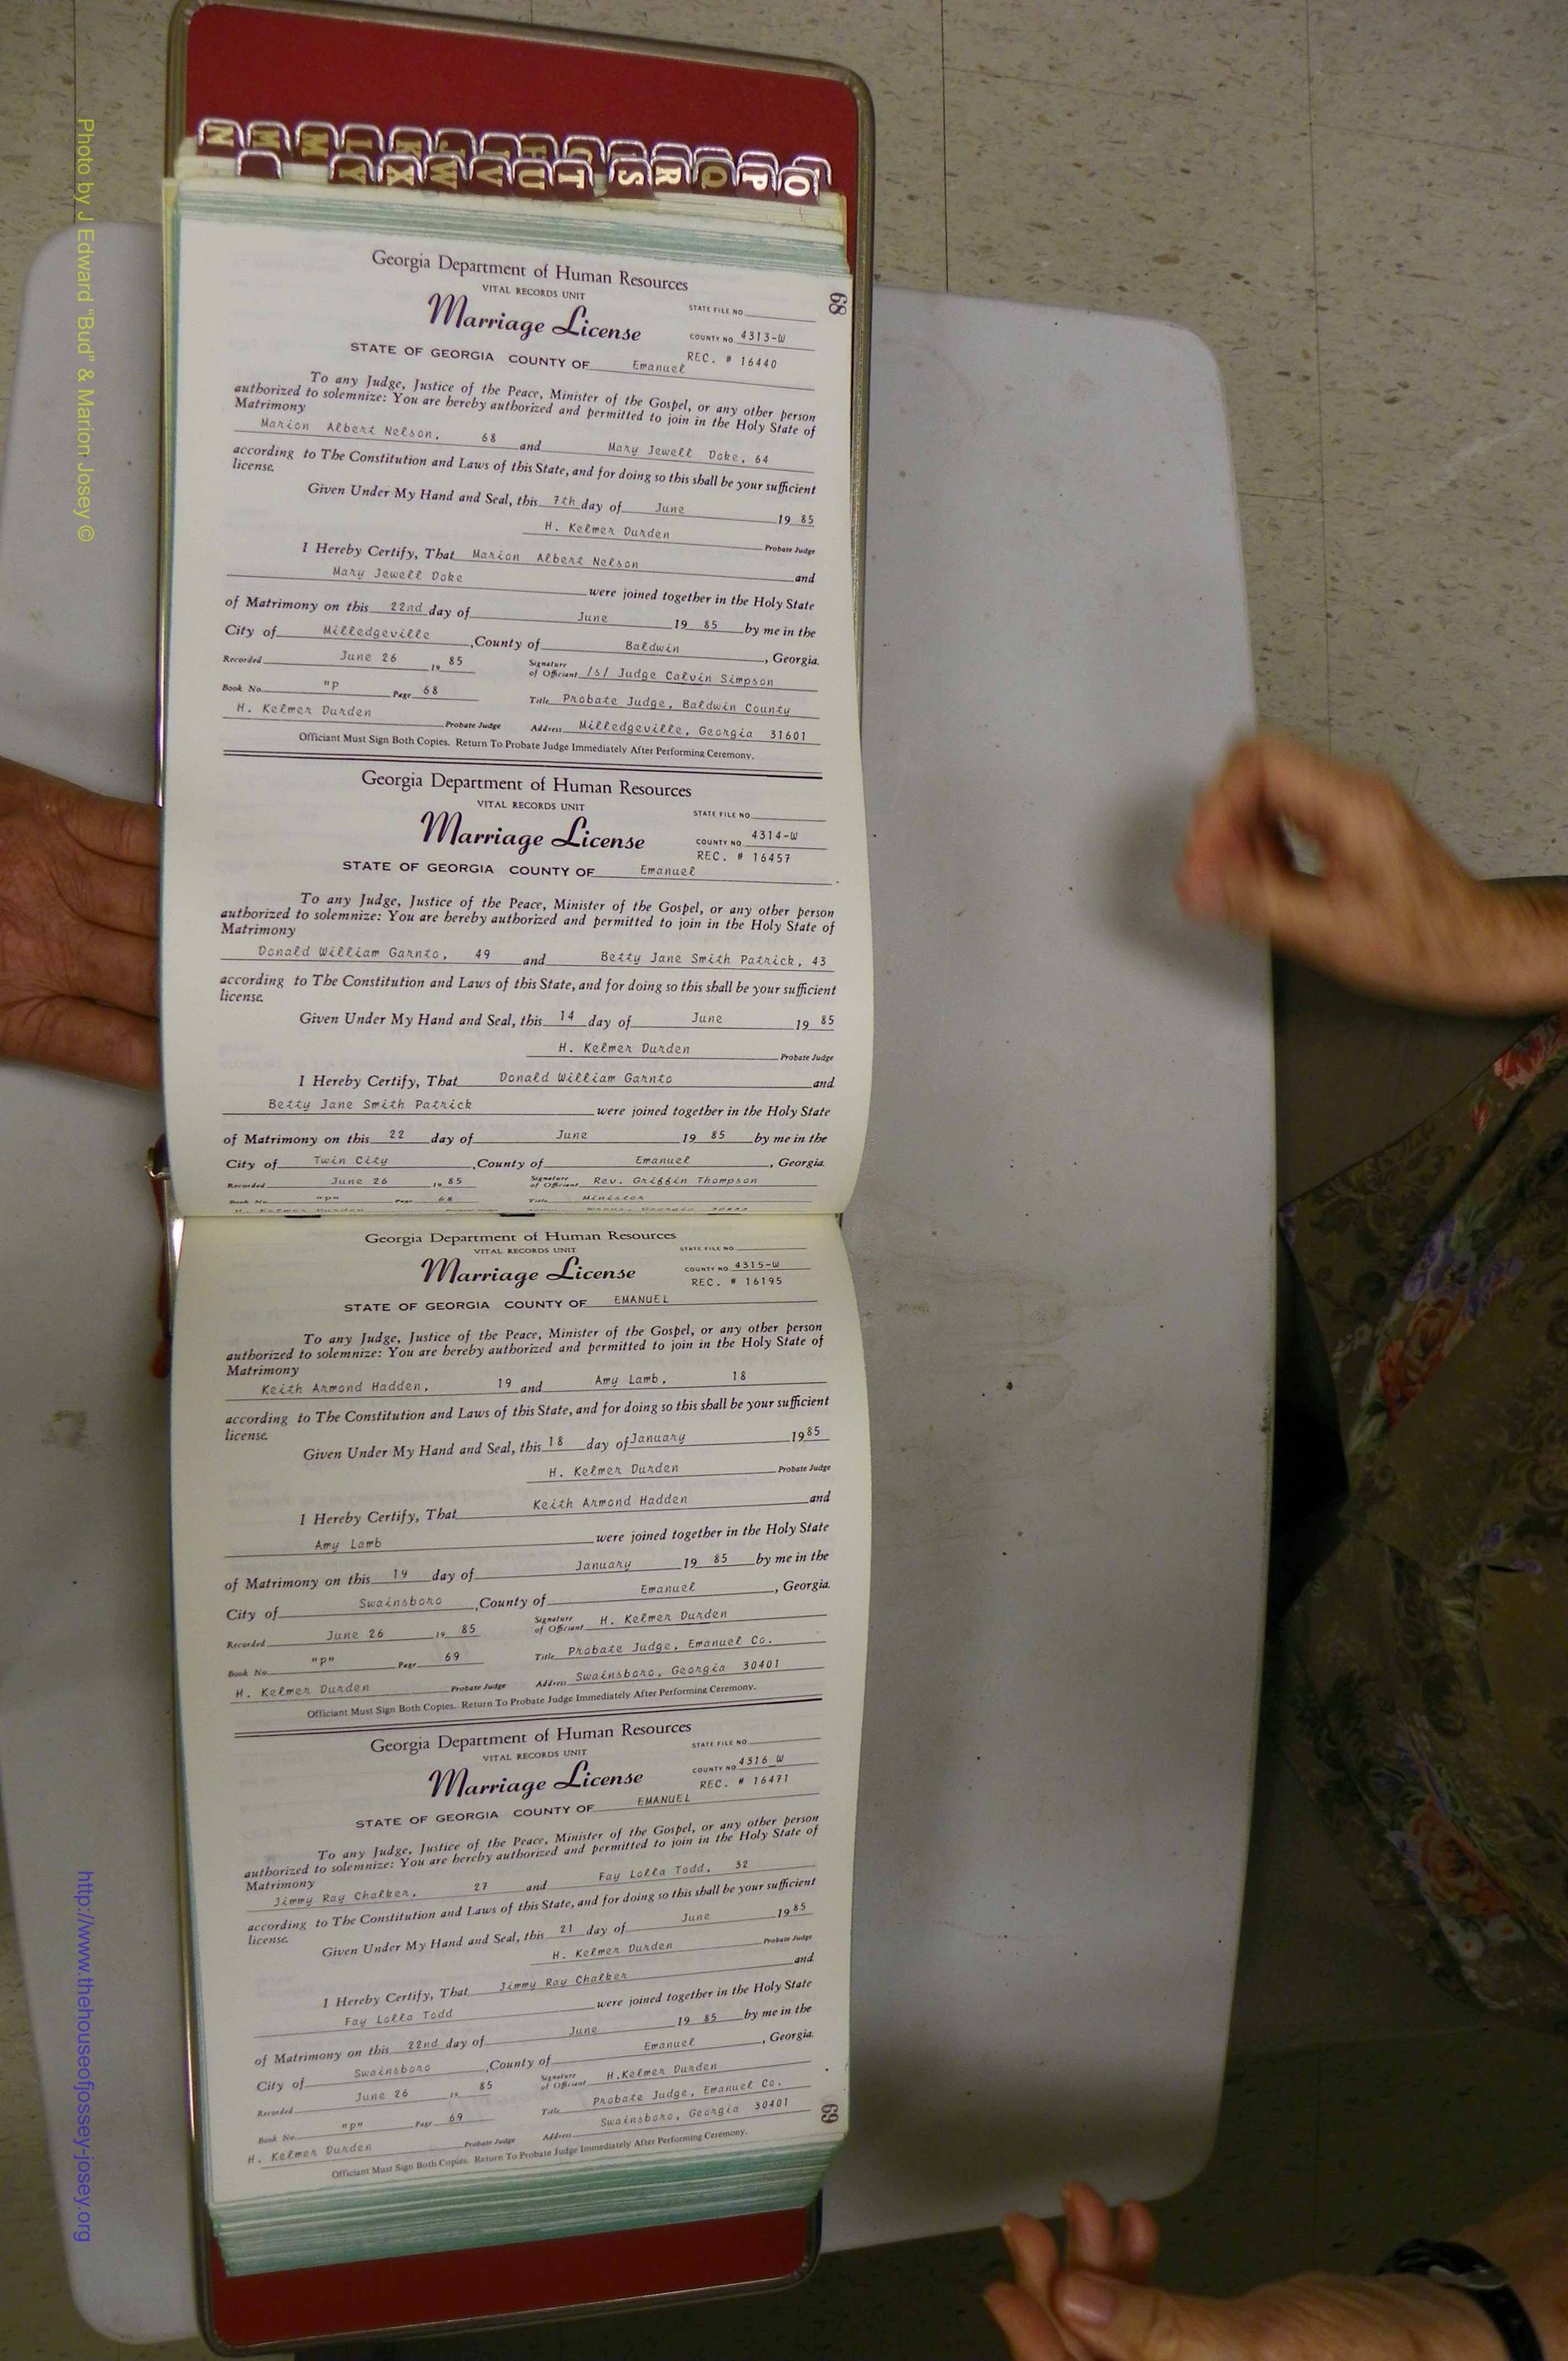 Photo by J Edward "Bud" & Marion Josey ©
http://www.thehouseofjossey-josey.org
N M M L K J F
Y X W V U T S R Q P O
68
Georgia Department of Human Resources
VITAL RECORDS UNIT
Marriage License
STATE FILE NO.
COUNTY NO. 4313-W
REC. # 16440
STATE OF GEORGIA COUNTY OF Emanuel
To any Judge, Justice of the Peace, Minister of the Gospel, or any other person
authorized to solemnize: You are hereby authorized and permitted to join in the Holy State of
Matrimony
Marion Albert Nelson, 68 and Mary Jewell Doke, 64
according to The Constitution and Laws of this State, and for doing so this shall be your sufficient
license.
Given Under My Hand and Seal, this 7th day of June 19 85
H. Kelmer Durden Probate Judge
I Hereby Certify, That Marion Albert Nelson and
Mary Jewell Doke were joined together in the Holy State
of Matrimony on this 22nd day of June 19 85 by me in the
City of Milledgeville, County of Baldwin, Georgia.
Recorded June 26 19 85 Signature of Officiant /s/ Judge Calvin Simpson
Book No. "p Page 68 Title Probate Judge, Baldwin County
H. Kelmer Durden Probate Judge Address Milledgeville, Georgia 31601
Officiant Must Sign Both Copies. Return To Probate Judge Immediately After Performing Ceremony.
Georgia Department of Human Resources
VITAL RECORDS UNIT
Marriage License
STATE FILE NO.
COUNTY NO. 4314-W
REC. # 16457
STATE OF GEORGIA COUNTY OF Emanuel
To any Judge, Justice of the Peace, Minister of the Gospel, or any other person
authorized to solemnize: You are hereby authorized and permitted to join in the Holy State of
Matrimony
Donald William Garnto, 49 and Betty Jane Smith Patrick, 43
according to The Constitution and Laws of this State, and for doing so this shall be your sufficient
license.
Given Under My Hand and Seal, this 14 day of June 19 85
H. Kelmer Durden Probate Judge
I Hereby Certify, That Donald William Garnto and
Betty Jane Smith Patrick were joined together in the Holy State
of Matrimony on this 22 day of June 19 85 by me in the
City of Twin City, County of Emanuel, Georgia.
Recorded June 26 19 85 Signature of Officiant Rev. Griffin Thompson
Book No. "p" Page 68 Title Minister
H. Kelmer Durden
Georgia Department of Human Resources
VITAL RECORDS UNIT
Marriage License
STATE FILE NO.
COUNTY NO. 4315-W
REC. # 16195
STATE OF GEORGIA COUNTY OF EMANUEL
To any Judge, Justice of the Peace, Minister of the Gospel, or any other person
authorized to solemnize: You are hereby authorized and permitted to join in the Holy State of
Matrimony
Keith Armond Hadden, 19 and Amy Lamb, 18
according to The Constitution and Laws of this State, and for doing so this shall be your sufficient
license.
Given Under My Hand and Seal, this 18 day of January 19 85
H. Kelmer Durden Probate Judge
I Hereby Certify, That Keith Armond Hadden and
Amy Lamb were joined together in the Holy State
of Matrimony on this 19 day of January 19 85 by me in the
City of Swainsboro, County of Emanuel, Georgia.
Recorded June 26 19 85 Signature of Officiant H. Kelmer Durden
Book No. "p" Page 69 Title Probate Judge, Emanuel Co.
H. Kelmer Durden Probate Judge Address Swainsboro, Georgia 30401
Officiant Must Sign Both Copies. Return To Probate Judge Immediately After Performing Ceremony.
Georgia Department of Human Resources
VITAL RECORDS UNIT
Marriage License
STATE FILE NO.
COUNTY NO. 4316 W
REC. # 16471
STATE OF GEORGIA COUNTY OF EMANUEL
To any Judge, Justice of the Peace, Minister of the Gospel, or any other person
authorized to solemnize: You are hereby authorized and permitted to join in the Holy State of
Matrimony
Jimmy Ray Chalker, 27 and Fay Lolla Todd, 32
according to The Constitution and Laws of this State, and for doing so this shall be your sufficient
license.
Given Under My Hand and Seal, this 21 day of June 19 85
H. Kelmer Durden Probate Judge
I Hereby Certify, That Jimmy Ray Chalker and
Fay Lolla Todd were joined together in the Holy State
of Matrimony on this 22nd day of June 19 85 by me in the
City of Swainsboro, County of Emanuel, Georgia.
Recorded June 26 19 85 Signature of Officiant H.Kelmer Durden
Book No. "p" Page 69 Title Probate Judge, Emanuel Co.
H. Kelmer Durden Probate Judge Address Swainsboro, Georgia 30401
Officiant Must Sign Both Copies. Return To Probate Judge Immediately After Performing Ceremony.
69